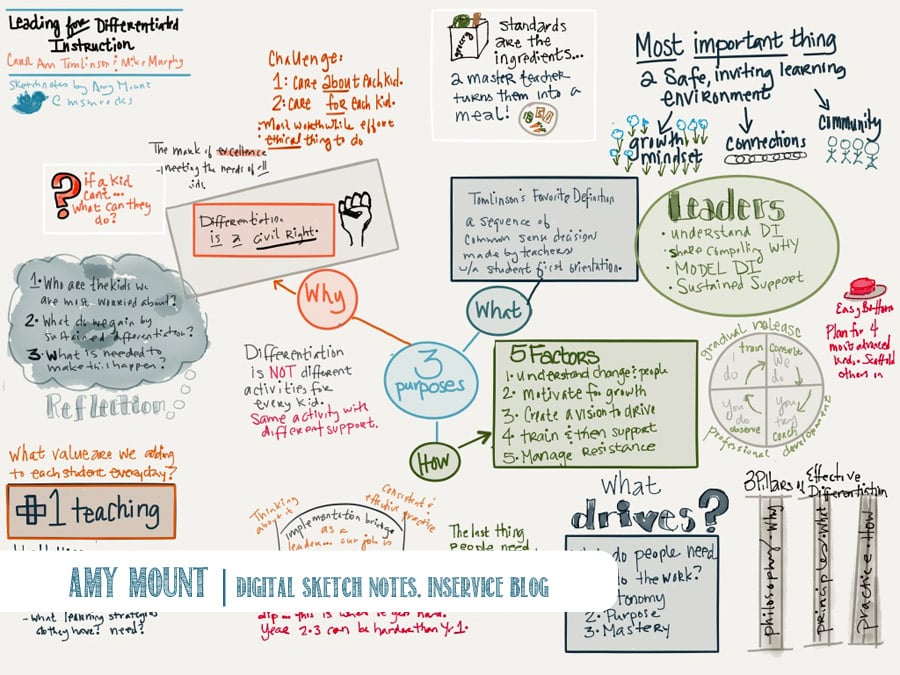 Leading for Differentiated
Instruction
Carol Ann Tomlinson & Mike Murphy
Sketchnotes by Amy Mount
Challenge:
1: care about each kid.
2: care for each kid.
Most worthwhile effort
ethical thing to do
grocery
Standards
are the
ingredients...
2 master teacher
turns them into a
meal!
Most important thing
2 Safe, inviting learning
environment
growth
mindset
connections
community
The mark of excellence
-meeting the needs of all
kids
?
if a kid
can't...
what can they
do?
Differentiation
is a civil Right.
Tomlinson's Favorite Definition
a sequence of
common sense decisions
made by teachers
w/a student first orientation.
Leaders
• understand DI
• share compelling WHY
• MODEL DI
• Sustained Support
1. Who are the kids we
are most worried about?
2. What do we gain by
sustained differentiation?
3. What is needed to
make this happen?
Reflection
Why
What
3
purposes
How
Differentiation
is NOT different
activities for
every kid.
Same activity with
different support.
5 Factors
1. understand change & people
2. Motivate for growth
3. Create a vision to drive
4 train & then support
5. Manage Resistance
gradual release
I do
train
Consult
We do
You do
observe
You
they
coach
professional development
Easy Button
Plan for 4
most advanced
kids. Scaffold
others in
What value are we adding
to each student everyday?
+1 teaching
Thinking
about it
Consistent &
effective practice
implementation bridge
as a
leader... our job is
The last thing
people need
What
drives?
What do people need
to do the work?
Autonomy
2. Purpose
3. Mastery
3 Pillars of Effective
Differentiation
philosophy-why
principles-what
practice-how
AMY MOUNT | DIGITAL SKETCH NOTES, INSERVICE BLOG
- What learning strategies
do they have? need?
dip... this is when it gets hard.
Year 2-3 can be harder than Yr 1.